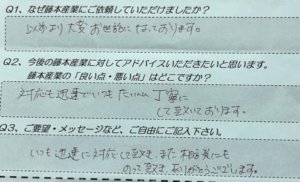 Q1、なぜ藤本産業にご依頼していただけましたか?
以前より大変お世話になっております。
Q2、今後の藤本産業に対してアドバイスいただきたいと思います。
藤本産業の「良い点・悪い点」はどこですか?
対応も迅速でいつもたいへん丁寧に
して頂いております。
Q3、ご要望・メッセージなど、ご自由にご記入下さい。
いつも迅速に対応して頂き、また相談にも
のって頂き、ありがとうございます。